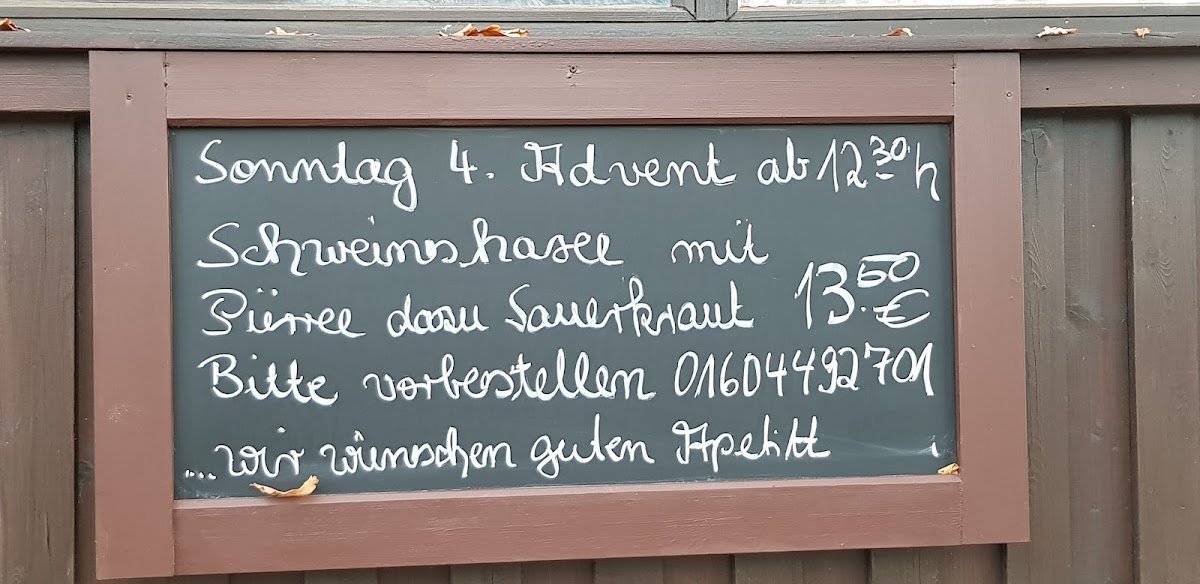 Sonntag 4. Advent ab 12³⁰ h
Schweinshaxee mit
Püree dazu Sauerkraut 13.⁵⁰ €
Bitte vorbestellen 01604492701
...wir wünschen guten Apetitt